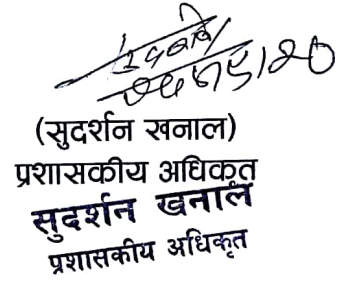 (सुदर्शन खनाल)
प्रशासकीय अधिकृत
सुदर्शन खनाल
प्रशासकीय अधिकृत